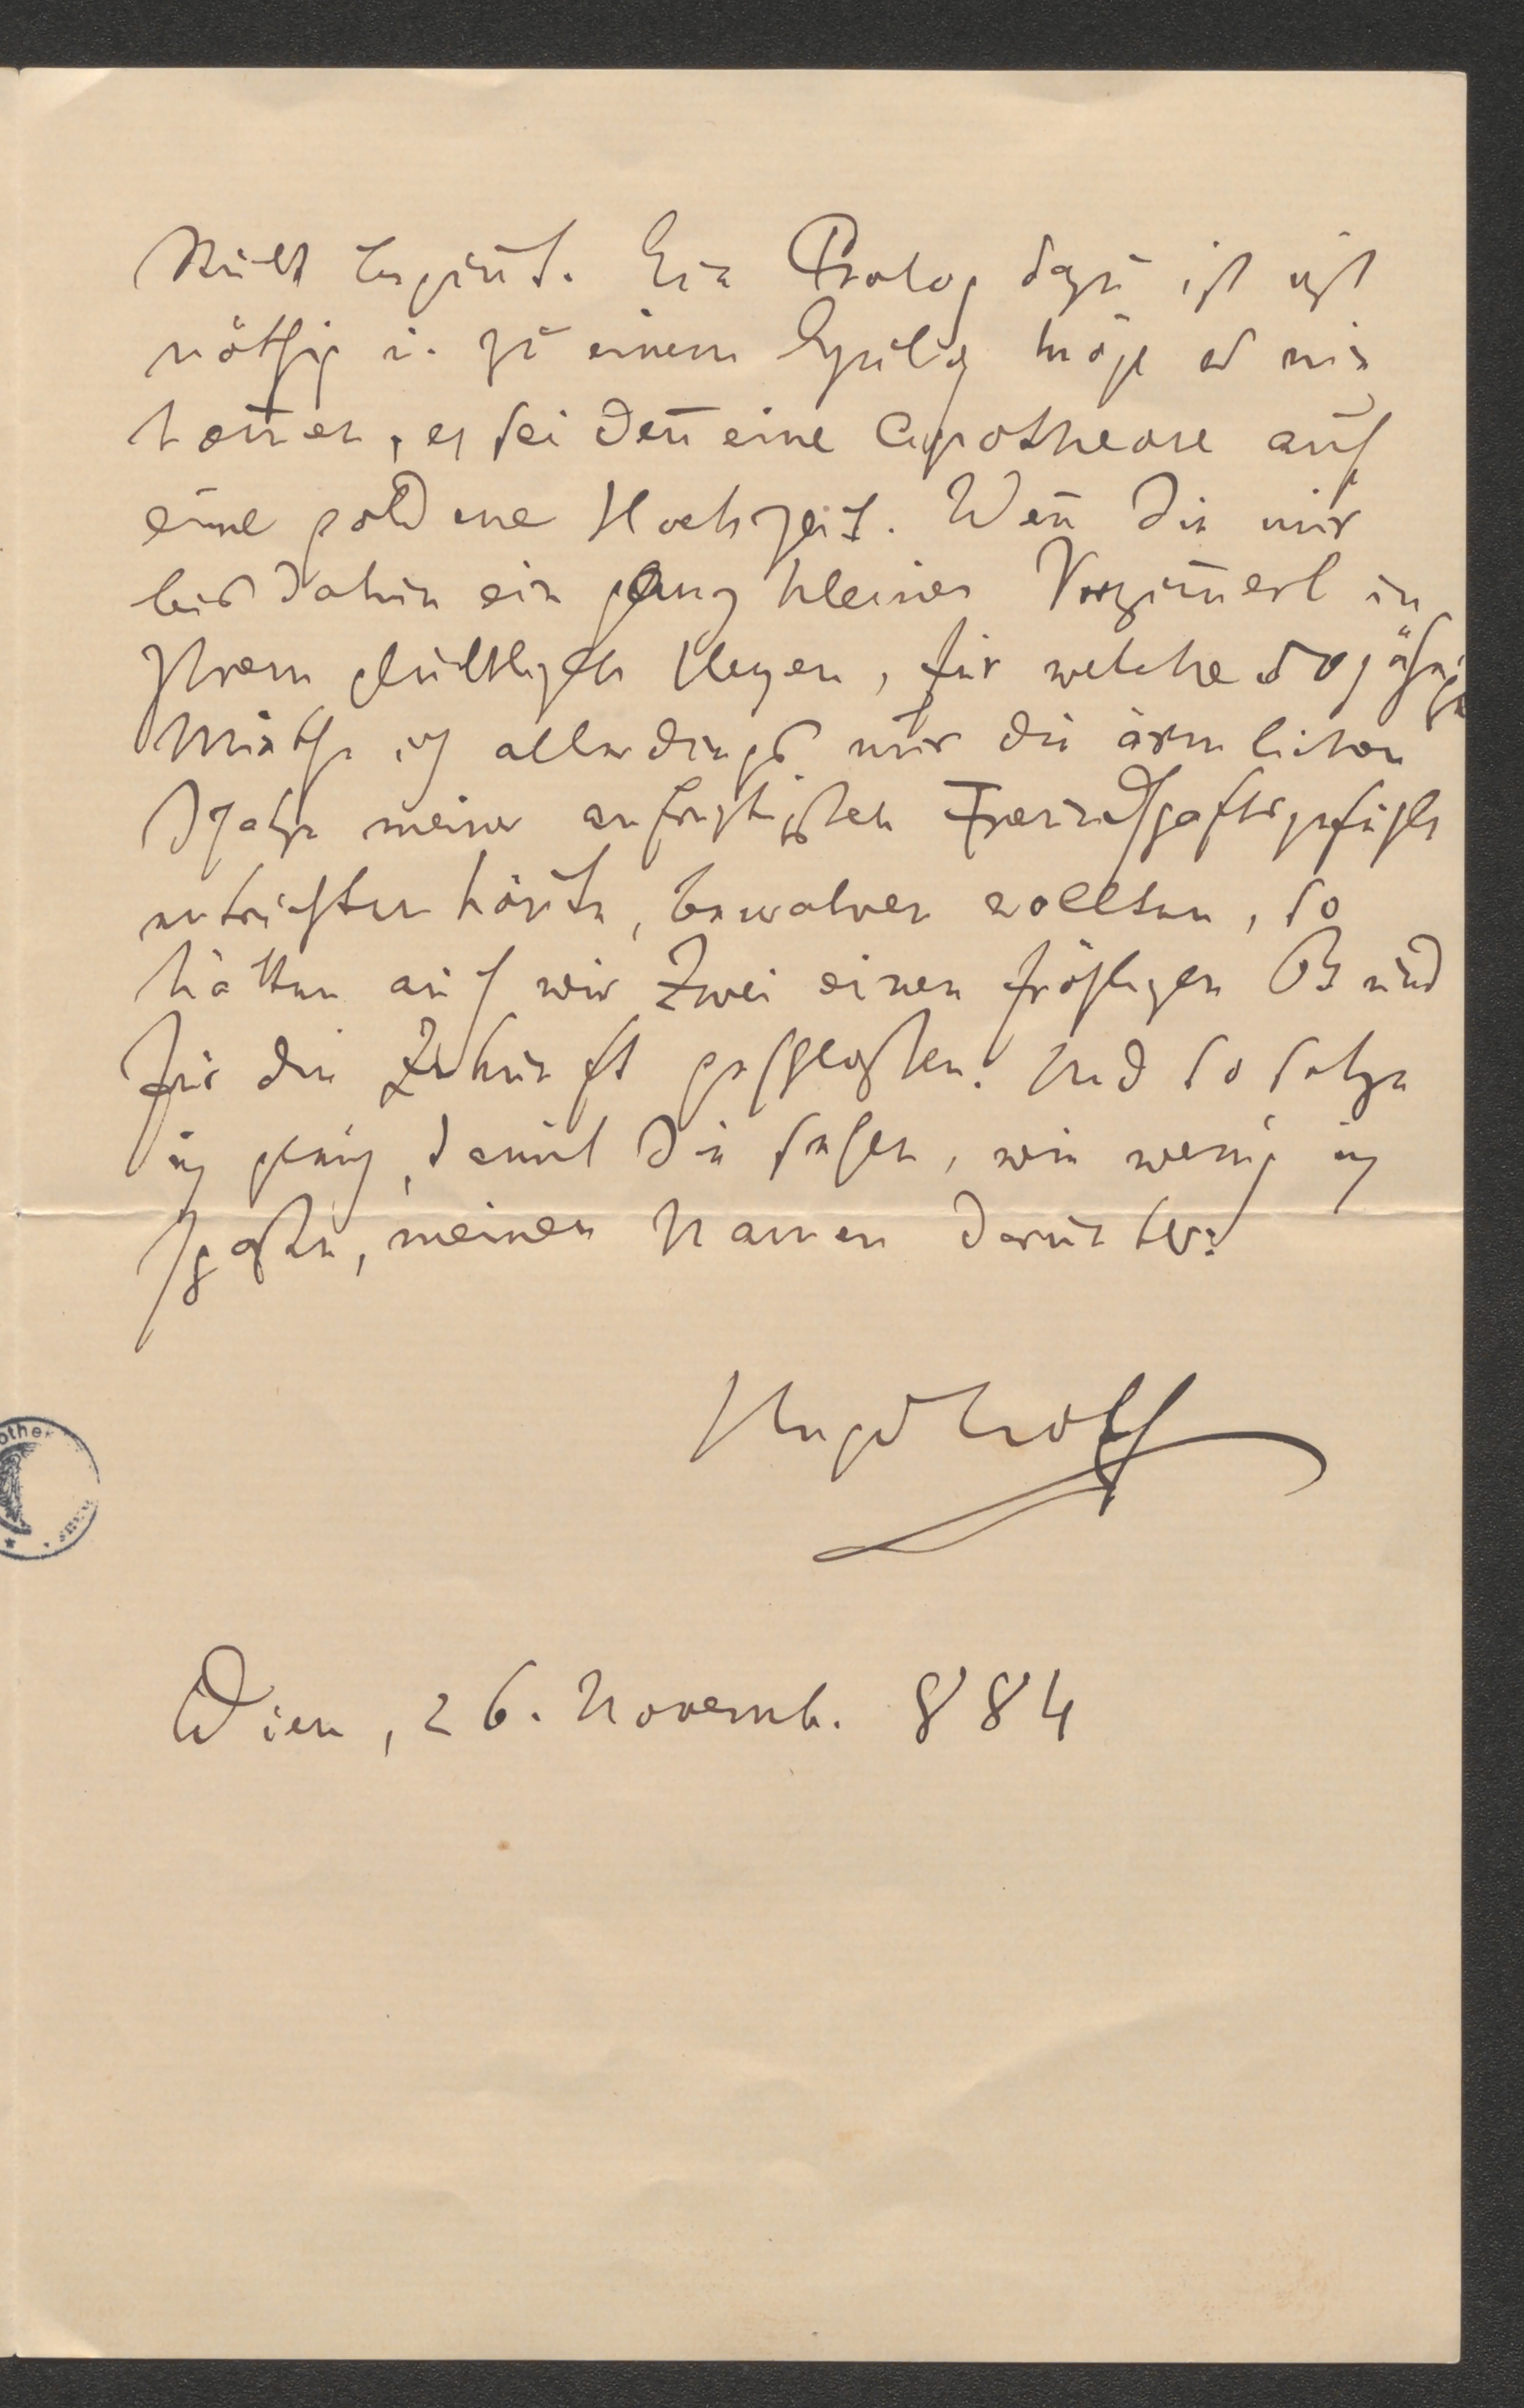 Stück beginnt. Ein Prolog dazu ist nicht
nöthig u. zu einem Epilog möge es nie
kom̅en, es sei den̅ eine Apotheose auf
eine goldene Hochzeit. Wen̅ Sie mir
bis dahin ein ganz kleines Vorzim̅erl in
Ihrem glücklichen Herzen, für welche 50jährige
Miethe ich allerdings nur die ärmlichen
meiner aufrichtigsten Freundschaftsgefühle
entrichten kön̅te, bewahren wollten, so
hätten auch wir Zwei einen fröhlichen Bund
für die Zukunft geschloßen. Und so setze
ich genug, damit Sie sehen, wie wenig ich
spaße, meinen Namen darunter:
Hugo Wolf
Wien, 26. Novemb. 884
othek